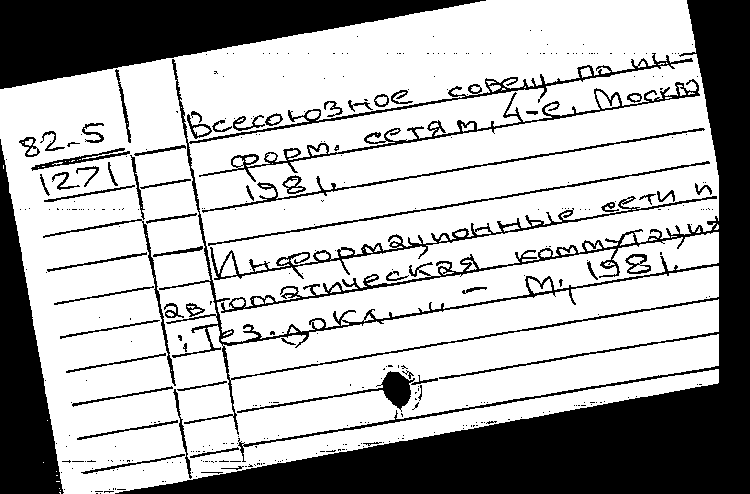 82-5
1271
Всесоюзное совещ. по ин=
форм. сетям, 4-е. Москва
1981.
Информационные сети и
автоматическая коммутация
: Тез. докл. ... - М., 1981.